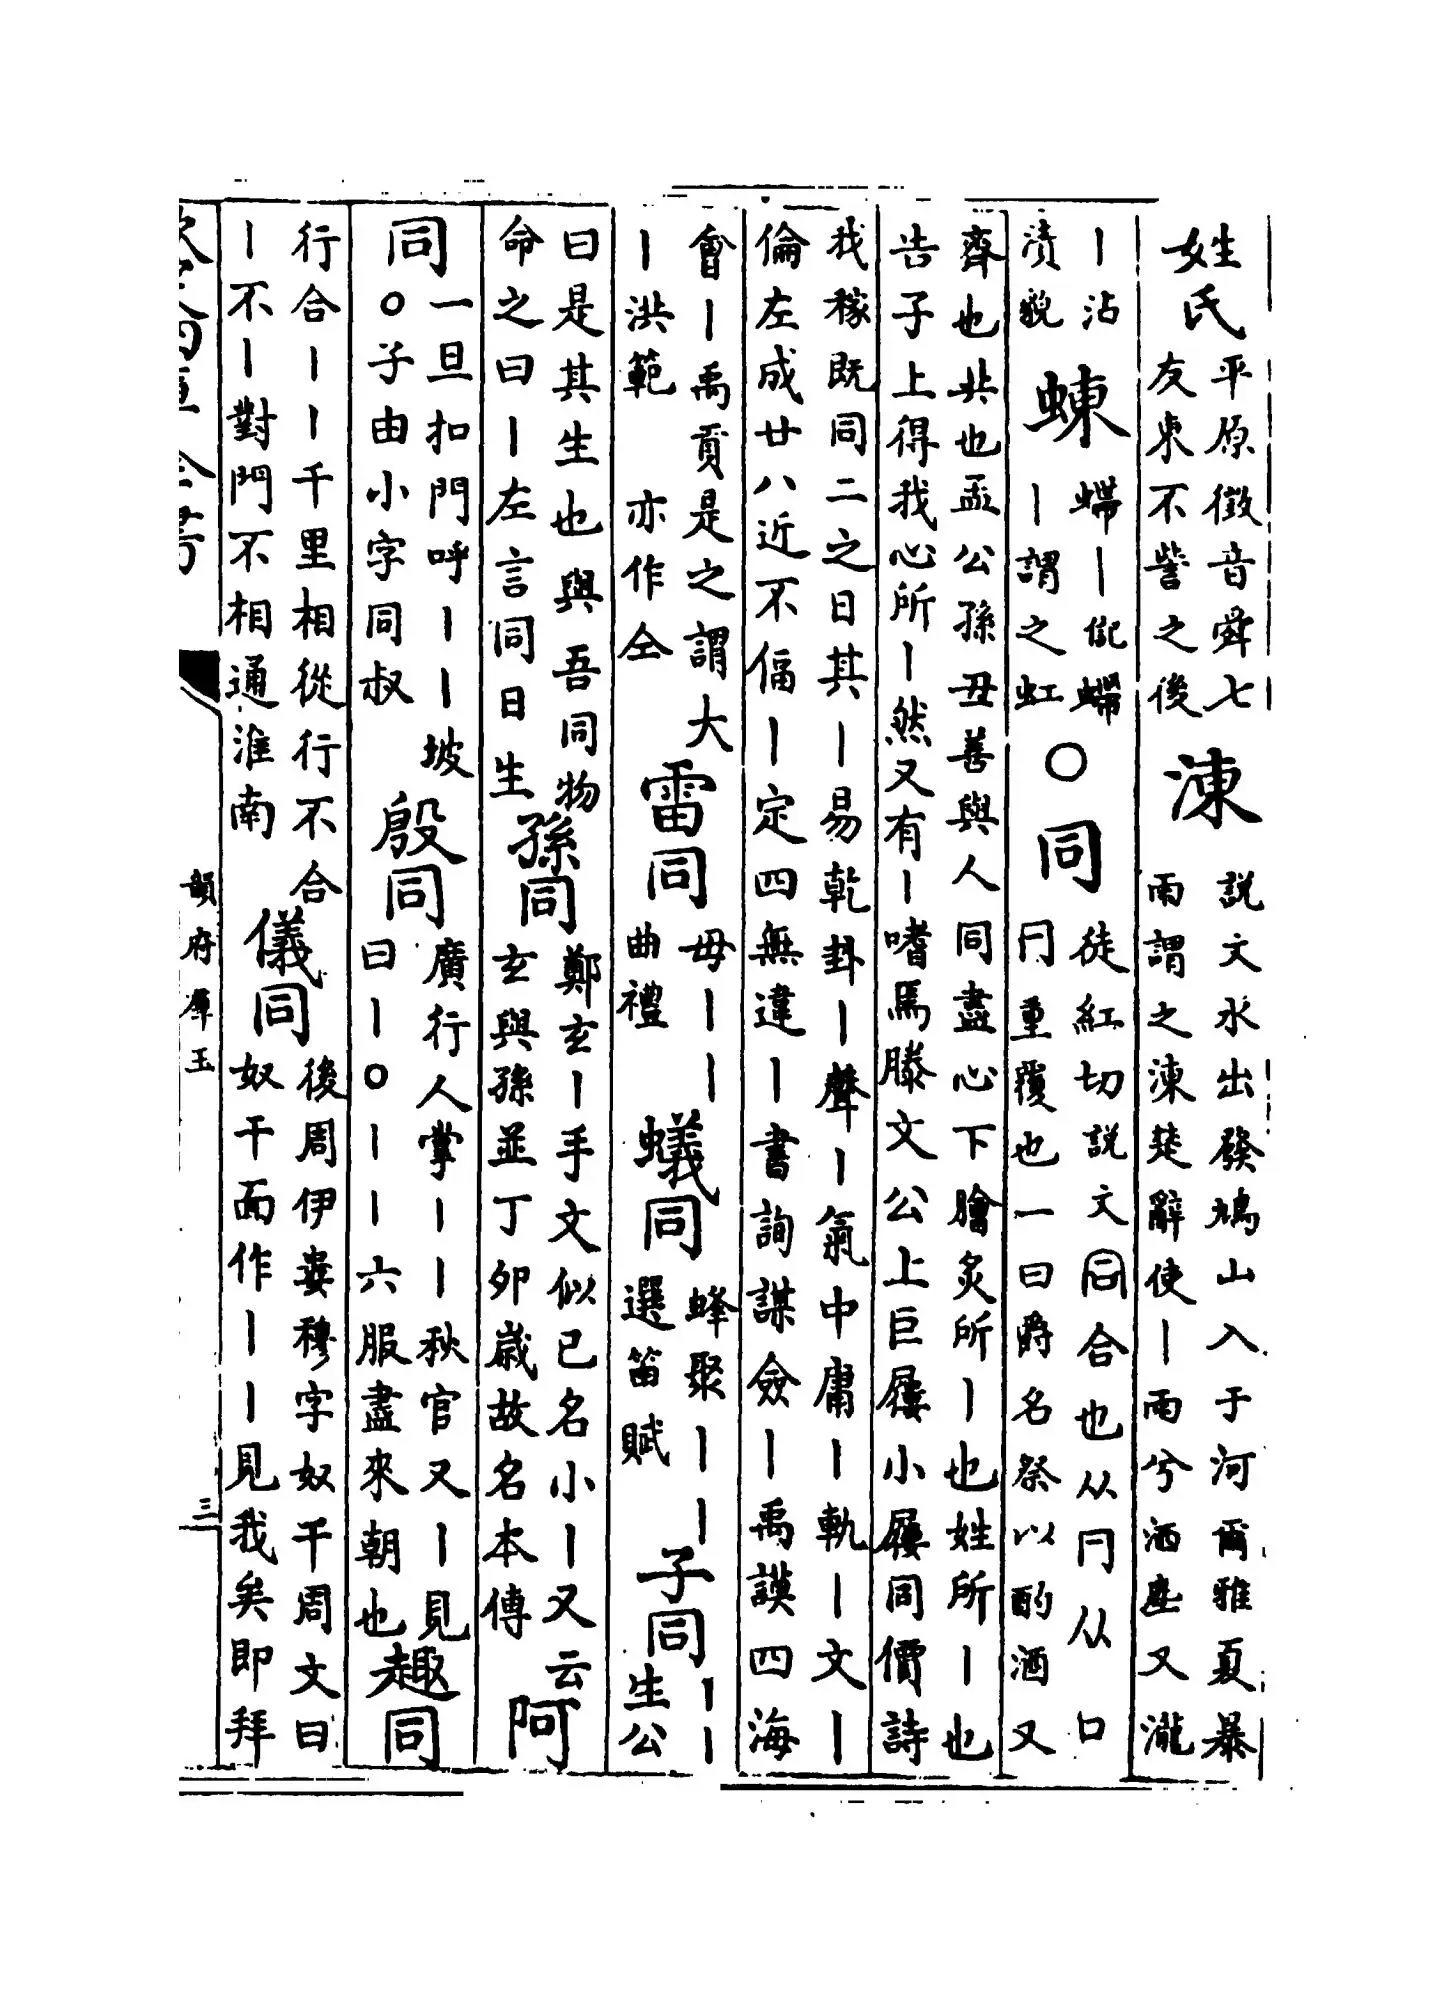 姓氏
平原徵音舜七
友東不訾之後
涷
說文水出發鳩山入于河爾雅夏暴
雨謂之涷楚辭使丨雨兮洒塵又瀧
丨沾
漬貌
蝀
螮丨
丨謂之虹
○同
徒紅切說文同合也从冂从口
冂重覆也一曰爵名祭以酌酒又
齊也共也孟公孫丑善與人同盡心下膾炙所丨也姓所丨也
告子上得我心所丨然又有丨嗜焉滕文公上巨屨小屨同價詩
我稼既同二之日其丨易乾卦丨聲丨氣中庸丨軌丨文丨
倫左成廿八近不偪丨定四無違丨書詢謀僉丨禹謨四海
會丨禹貢是之謂大
丨洪範 亦作仝
雷同
毋丨丨
曲禮
蟻同
蜂聚丨丨
選笛賦
子同
丨丨
生公
曰是其生也與吾同物
命之曰丨左言同日生
孫同
鄭玄丨手文似已名小丨又云
玄與孫並丁卯歲故名本傳
阿
同
一旦扣門呼丨丨坡
○子由小字同叔
殷同
廣行人掌丨丨秋官又丨見
曰丨○丨丨六服盡來朝也
趣同
行合丨丨千里相從行不合
丨不丨對門不相通淮南
儀同
後周伊婁穆字奴干周文曰
奴干面作丨丨見我矣即拜
韻府羣玉
三